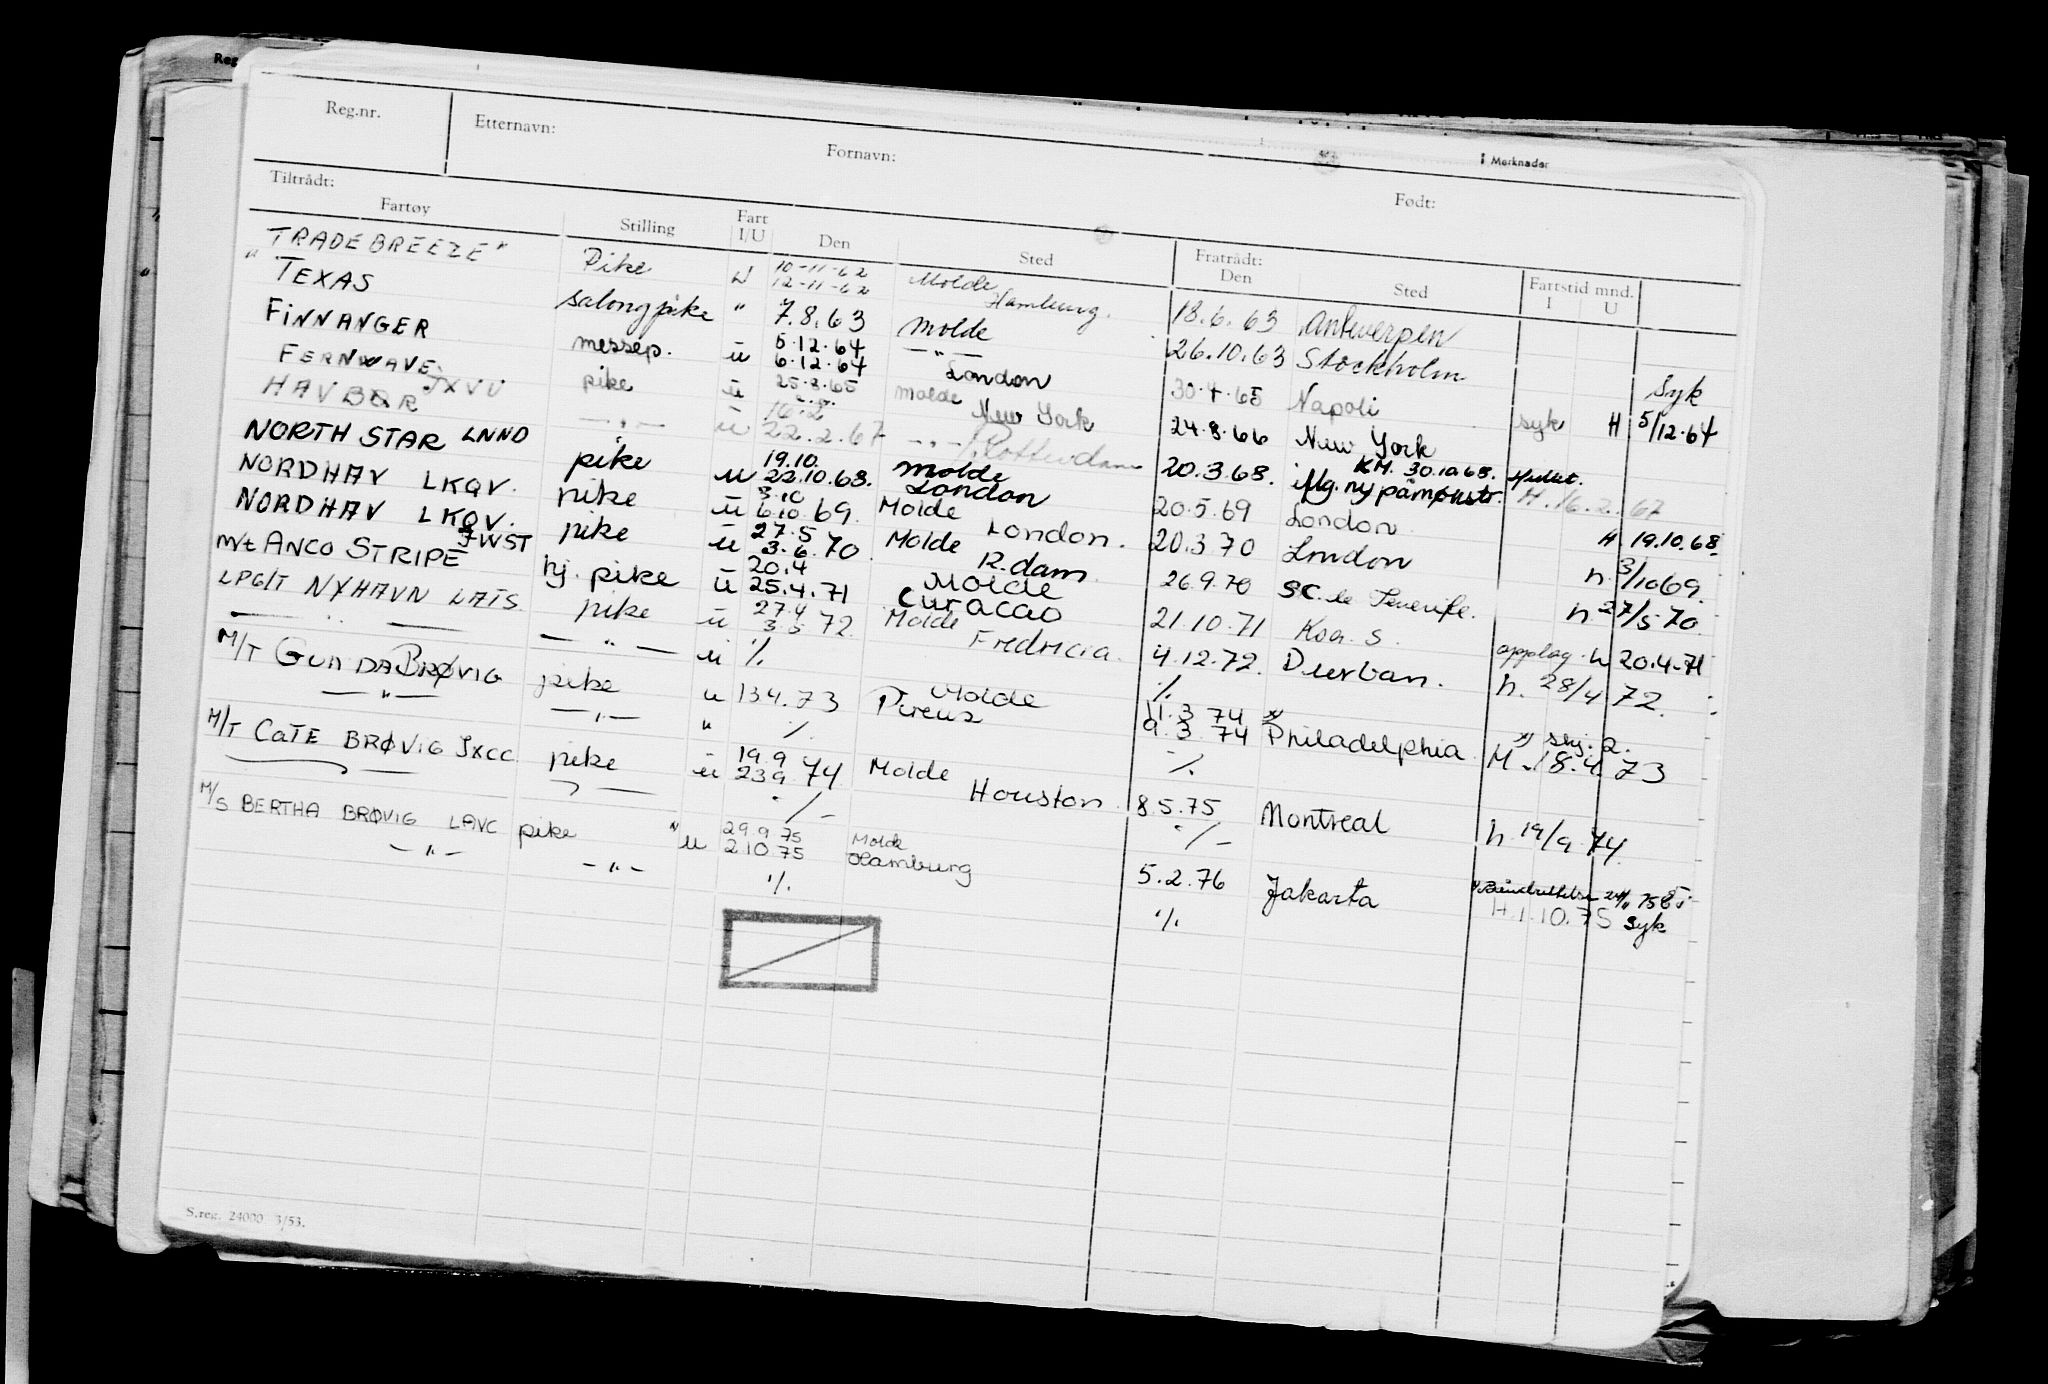 Reg.nr. Etternavn: Fornavn: Født:
Merknader
Tiltrådt: Fratrådt:
Fartøy Stilling Fart I/U Den Sted Den Sted Fartstid mnd. I U
"TRADEBREEZE" Pike U 10-11-62 Molde
12-11-62 Hamburg. 18.6.63 Antwerpen
TEXAS salongpike " 7.8.63 Molde 26.10.63 Stockholm
FINNANGER messep. ü 5.12.64 — " — Syk
6.12.64 London 30.4.65 Napoli syk H 5/12.64
FERNWAVE JXVU pike ü 25.8.65 Molde
New York 24.8.66 New York
HAVBØR — " — ü 16.2
22.2.67 — " — / Rotterdam 20.3.68. KM. 30.10.68. H. 16.2.67
NORTH STAR LNND pike u 19.10. Molde
22.10.68. London 20.5.69 London H. 19.10.68
NORDHAV LKQV. pike ü 3.10 Molde
6.10.69. London. 20.3.70 London h. 3/10 69.
NORDHAV LKQV. pike ü 27.5 Molde
3.6.70 R.dam. 26.9.70 SC. de Tenerife. h 27/5 70.
m/t ANCO STRIPE JWST hj. pike ü 20.4 Molde
25.4.71 Curacao 21.10.71 Koa. S. opplag. h 20.4.71
LPG/T NYHAVN LAIS pike ü 27.4 Molde
3.5 72. Fredricia. 4.12.72. Durban. h. 28/4 72.
— " — — " — u ·/. ·/.
M/T GUNDA BRØVIG pike u 134.73 Molde
Pireus 11.3 74 x)
9.3.74 Philadelphia x) skj. 2.
M. 18.4.73
— " — — " — " ·/. ·/.
M/T CATE BRØVIG JXCC pike ü 19.9 Molde
23.9.74 Houston. 8.5.75 Montreal h 19/9 74.
— " — — " — ·/. ·/.
M/S BERTHA BRØVIG LAVC pike " u 29.9.75 Molde
2.10.75 Hamburg 5.2.76 Jakarta H.1.10.75 syk
— " — — " — ·/. ·/.
S.reg. 24000 3/53.